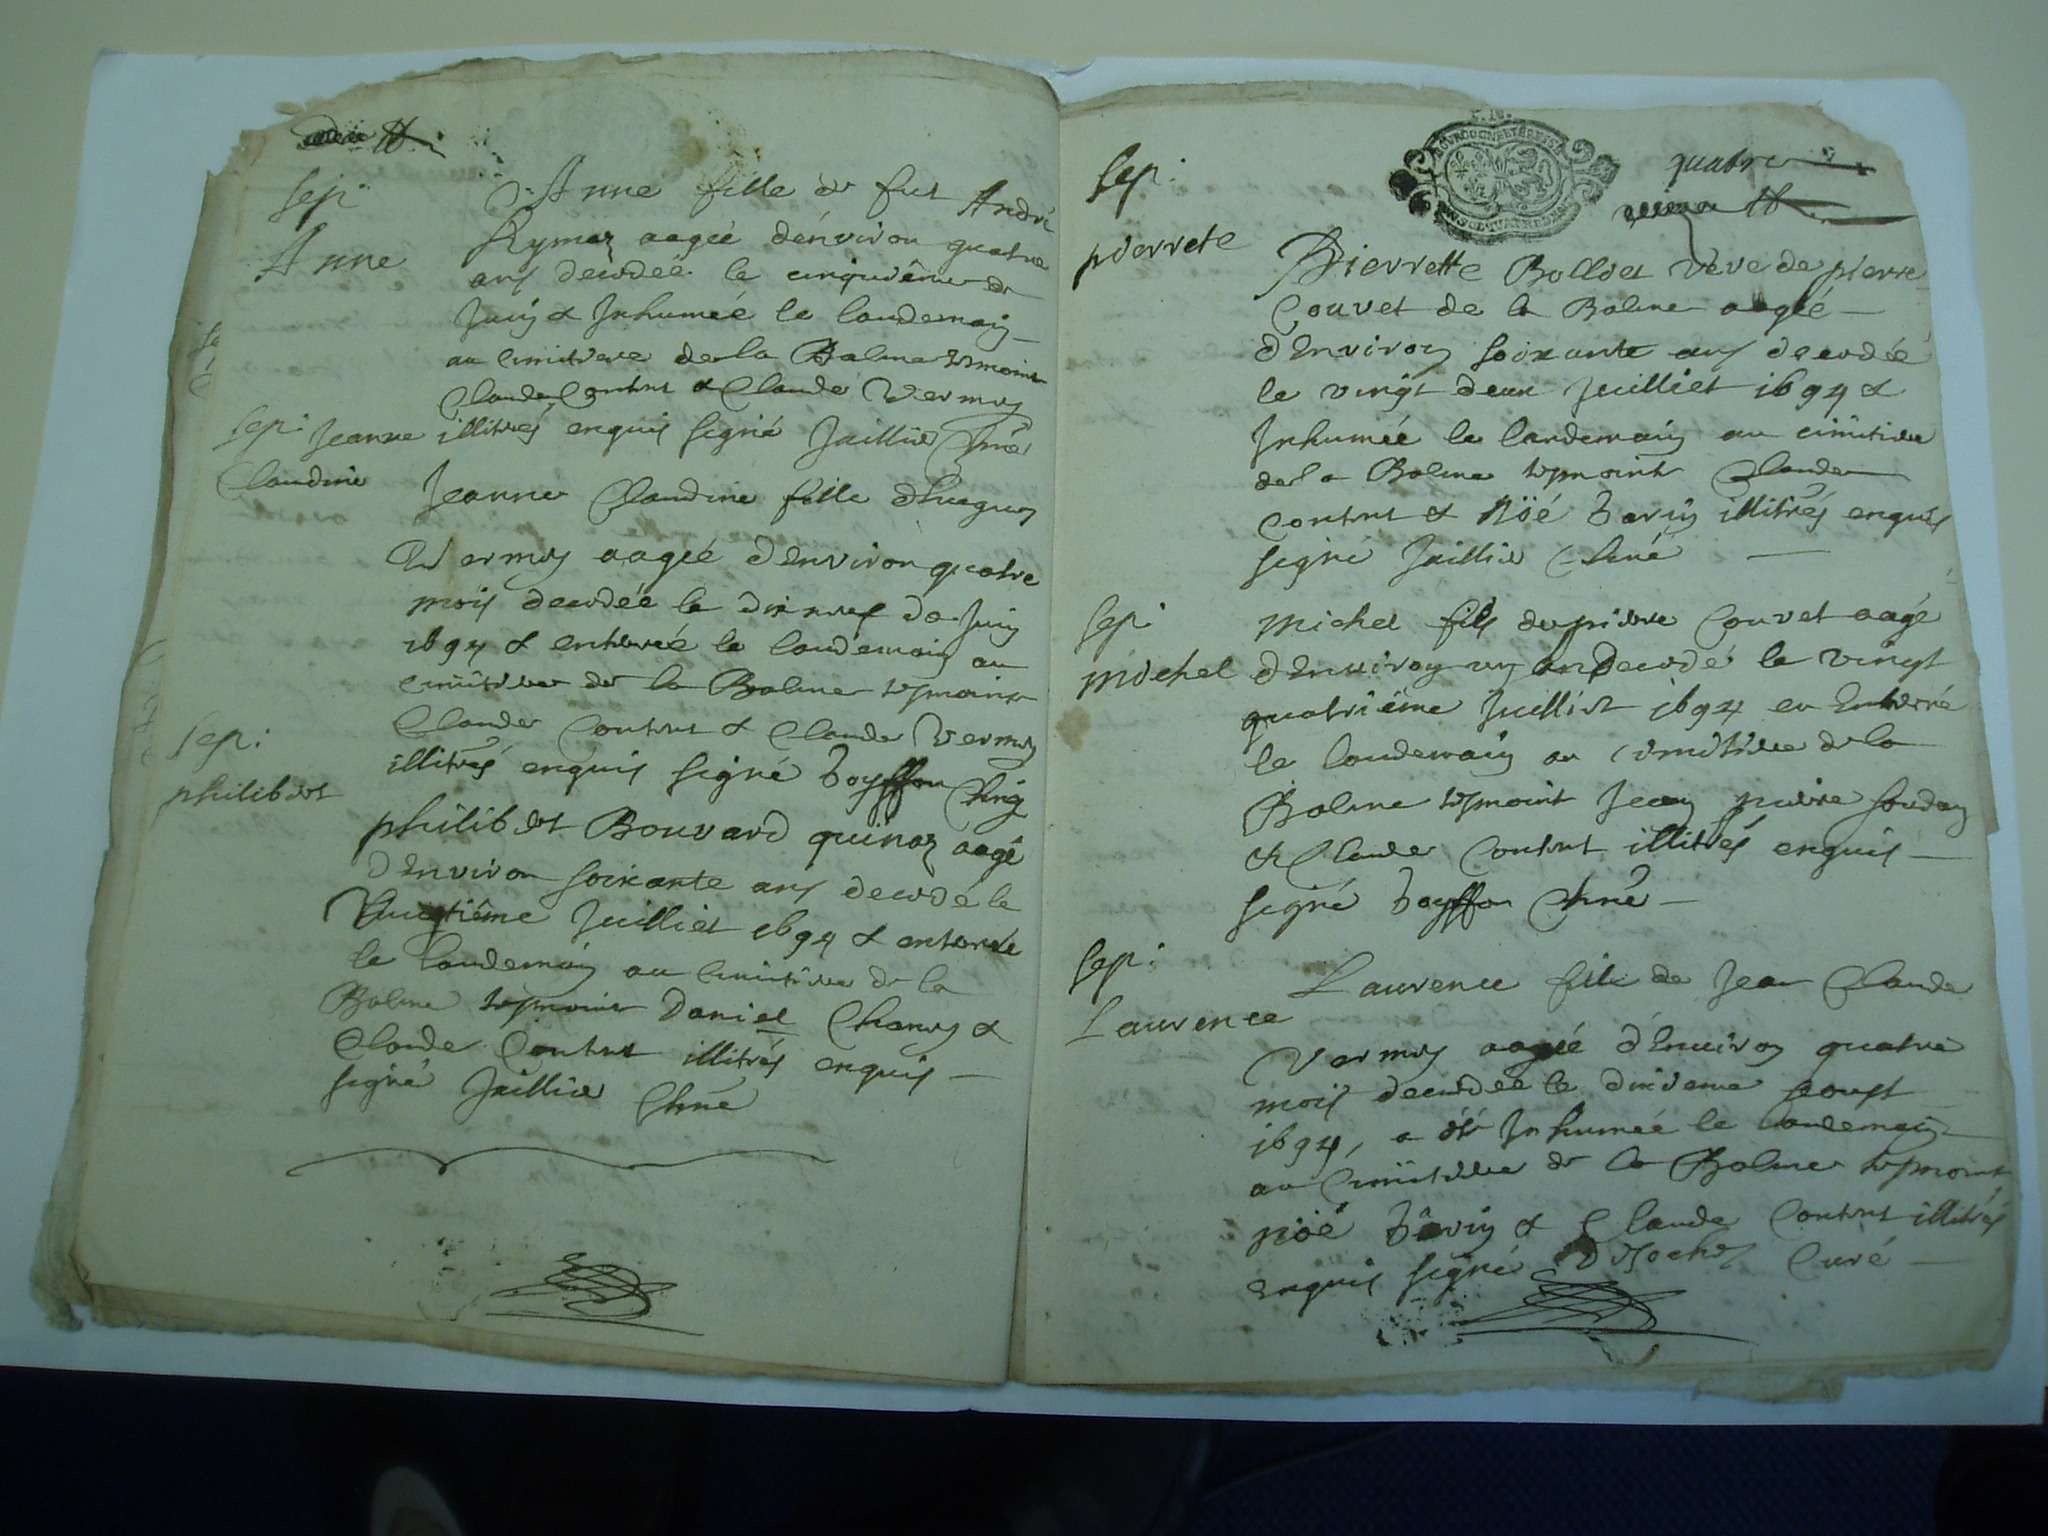 Sep:
Anne
Anne fille de fut André
Rymoz aagée d'environ quatre
ans decedée le cinquiême de
Juin & Inhumée le landemain
au cimitiere de la Balme tesmoins
Claude Contet & Claude Vermey
illitrés enquis signé Jaillier
Sep: Jeanne
Claudine
Jeanne Claudine fille d'hugues
Vermey aagée d'environ quatre
mois decedée le dixneuf de Juin
1694 & enterrée le landemain au
cimitiere de la Balme tesmoins
Claude Contet & Claude Vermey
illitrés enquis signé
Sep:
philibert
philibert Bouvard quinoz aagé
d'Environ soixante ans decedé le
Vingtiéme Juilliet 1694 & enterré
le landemain au Cimitiere de la
Balme tesmoins Daniel &
Claude Contet illitrés enquis
signé Jaillier
quatre
Sep:
pierrete
Pierrette Bolliet veve de pierre
Couvet de la Balme aagée
d'Environ soixante ans decedée
le vingt deux Juilliet 1694 &
Inhumée le landemain au cimitiere
de la Balme tesmoins Claude
Contet & Noé illitrés enquis
signé Jaillier
Sep:
michel
michel fils de pierre Couvet aagé
d'Environ un an decedé le vingt
quatriéme Juilliet 1694 en Enterré
le landemain au cimitiere de la
Balme tesmoins Jean pierre
& Claude Contet illitrés enquis
signé
Sep:
Laurence
Laurence fille de Jean Claude
Vermey aagée d'Environ quatre
mois decedée le dixieme aoust
1694, a été Inhumée le landemain
au Cimitiere de la Balme tesmoins
noë & Claude Contet illitrés
enquis signé Curé